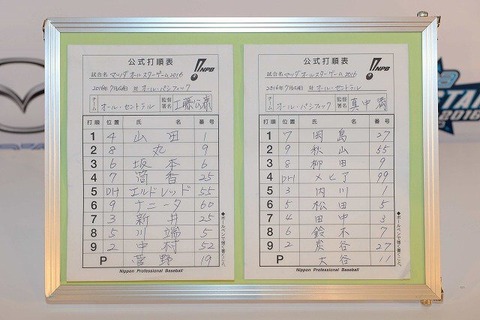 公式打順表
NPB
試合名 マツダオールスターゲーム2016
対 オール・パシフィック
チーム オール・セントラル 監督署名 工藤公康
打順 位置 氏名 番号
1 4 山田 1
2 8 丸 9
3 6 坂本 6
4 7 筒香 25
5 DH エルドレッド 55
6 9 ナニータ 60
7 3 新井 25
8 5 川端 5
9 2 中村 52
P 菅野 19
Nippon Professional Baseball
公式打順表
NPB
試合名 マツダオールスターゲーム2016
対 オール・セントラル
チーム オール・パシフィック 監督署名 真中満
打順 位置 氏名 番号
1 7 岡島 27
2 9 秋山 55
3 8 柳田 9
4 DH メヒア 99
5 3 内川 1
6 5 松田 5
7 4 田中 3
8 6 鈴木 7
9 2 炭谷 27
P 大谷 11
Nippon Professional Baseball
2016